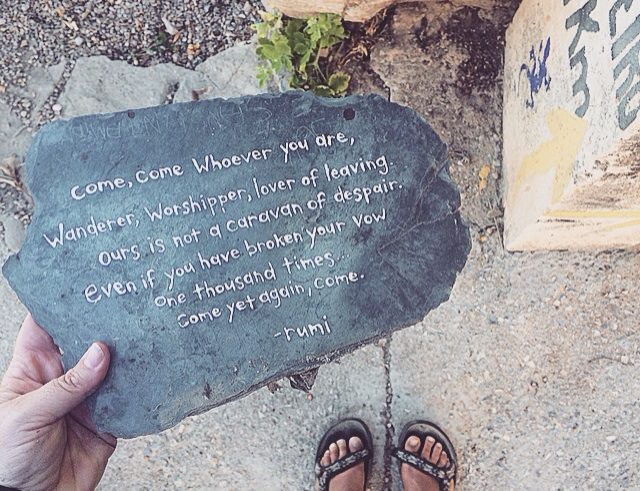 Come, Come Whoever you are,
Wanderer, Worshipper, lover of leaving.
Ours is not a caravan of despair.
even if you have broken your vow
one thousand times...
Come yet again, come.
-rumi
km